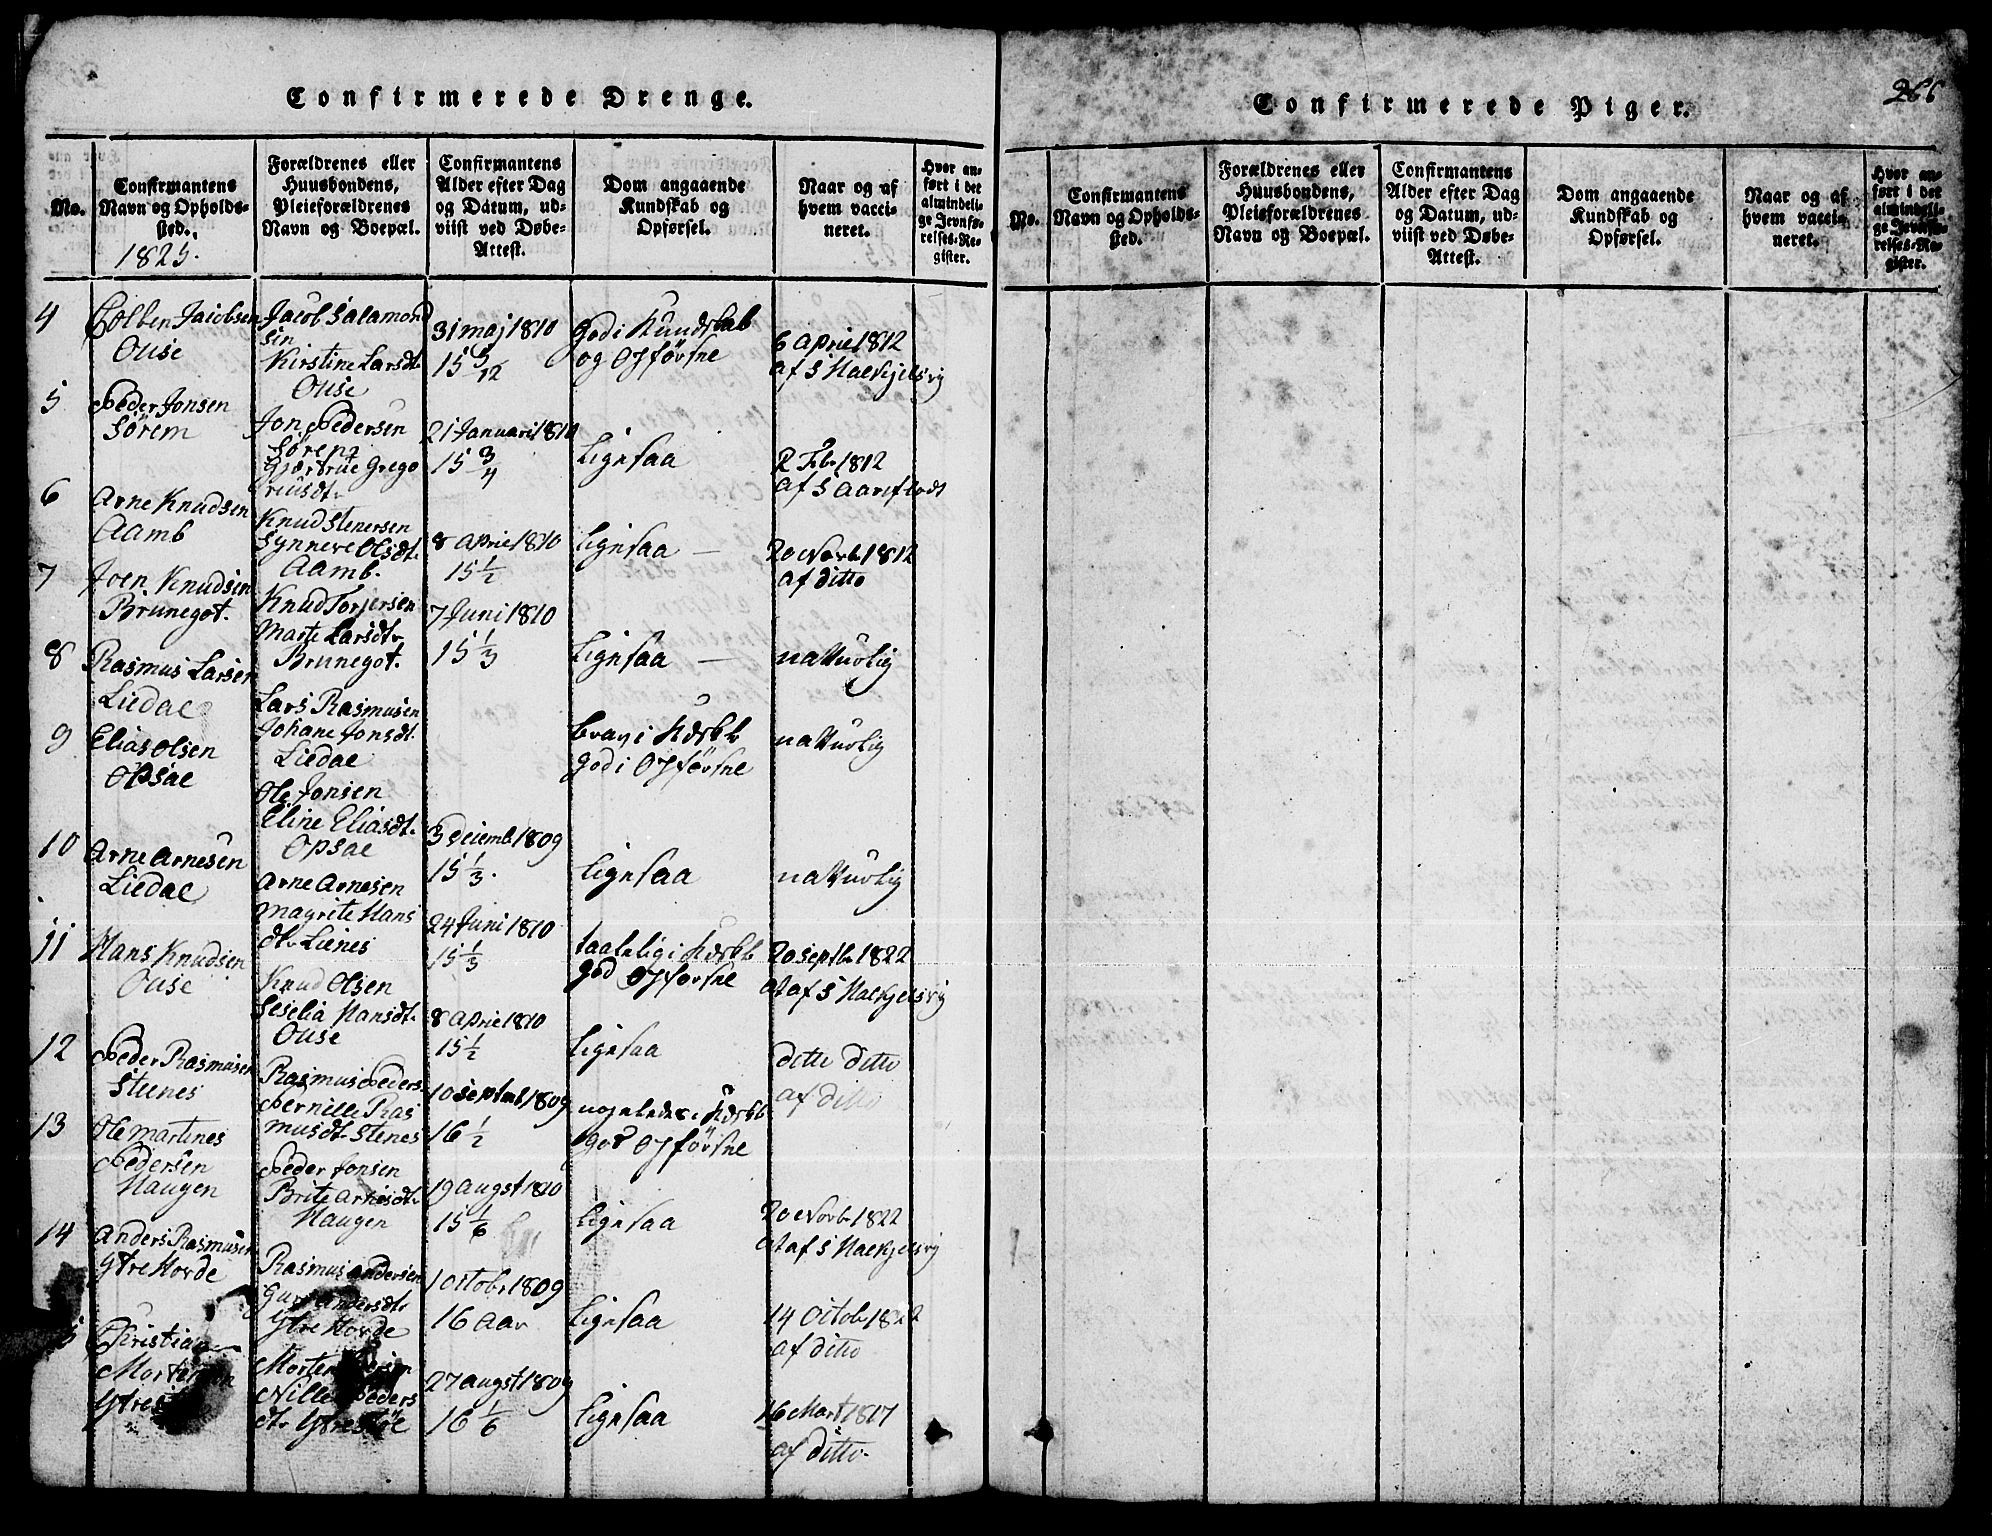 Confirmerede Drenge.
No.
Confirmantens
Navn og Opholds-
sted.
1825.
Forældrenes eller
Huusbondens,
Pleieforældrenes
Navn og Boepæl.
Confirmantens
Alder efter Dag
og Datum, ud-
viist ved Døbe-
Attest.
Dom angaaende
Kundskab og
Opførsel.
Naar og af
hvem vacci-
neret.
Hvor an-
ført i det
almindeli-
ge Jevnfø-
relses-Re-
gister.
4
Jacobsen
Ouse
Jacob Salamond
sin
Kirstine Larsdt.
Ouse
31 maj 1810
15 5/12
god i Kundskab
og Opførsne
6 April 1812
af S
5
Peder Jonsen
Sørem
Jon Pedersen
Sørem
Grego
riusdtr
21 Januari 1810
15 3/4
ligesaa
2 Feb 1812
af S Aarflodt
6
Arne Knudsen
Aamb
Knud Stenersen
Synneve Olsdt.
Aamb.
8 April 1810
15 1/2
ligesaa —
20 Novb 1812
af ditto
7
Joen Knudsen
Brunegot.
Knud Torjersen
Marte Larsdtr
Brunegot.
7 Juni 1810
15 1/3
ligesaa —
naturlig
8
Rasmus Larsen
Liedal
Lars Rasmusen
Johane Jonsdt.
Liedal
brav i
god i Opførsne
naturlig
9
Elias Olsen
Opsal
Ole Jonsen
Eline Eliasdt.
Opsal
3 Decemb 1809
15 1/3.
ligesaa
naturlig
10
Arne Arnesen
Liedal
Arne Arnesen
Magrite Hans
dtr Lienes
24 Juni 1810
15 1/3
taalelig i
god Opførsne
20 Septb 1822
at af S
11
Hans Knudsen
Ouse
Knud Olsen
Seselia Hansdt.
Ouse
8 April 1810
15 1/2
ligesaa
dette ditto
af ditto
12
Peder Rasmusen
Steenes
Rasmus Peders.
Pernille Ras
musdt. Stenes
10 Septmb 1809
16 1/2
nogeledes i
god Opførsne
13
Ole Martines
Pedersen
Haugen
Peder Jonsen
Brite Arnesdt.
Haugen
19 Augst 1810
15 1/6
ligesaa
20 Novb 1822
at af S
14
Anders Rasmusen
Ytre Hovde
Rasmus Andersen
Guri Andersdtr
Ytre Hovde
1 Octob 1809
16 aar
ligesaa
14 Octob 1822
af ditto
Christian
Morten
Nille Peders
dtr
27 Augst 1809
16 1/6
ligesaa
16 Mart 1817
af ditto.
266
Confirmerede Piger.
No.
Confirmantens
Navn og Opholds-
sted.
Forældrenes eller
Huusbondens,
Pleieforældrenes
Navn og Boepæl.
Confirmantens
Alder efter Dag
og Datum, ud-
viist ved Døbe-
Attest.
Dom angaaende
Kundskab og
Opførsel.
Naar og af
hvem vacci-
neret.
Hvor an-
ført i det
almindeli-
ge Jevnfø-
relses-Re-
gister.